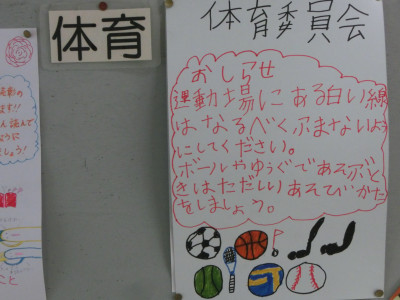 体育
体育委員会
おしらせ
運動場にある白い線
はなるべくふまないよう
にしてください。
ボールやゆうぐであそぶと
きはただしいあそびかた
をしましょう。
ます!!
ように
しょう!
こと